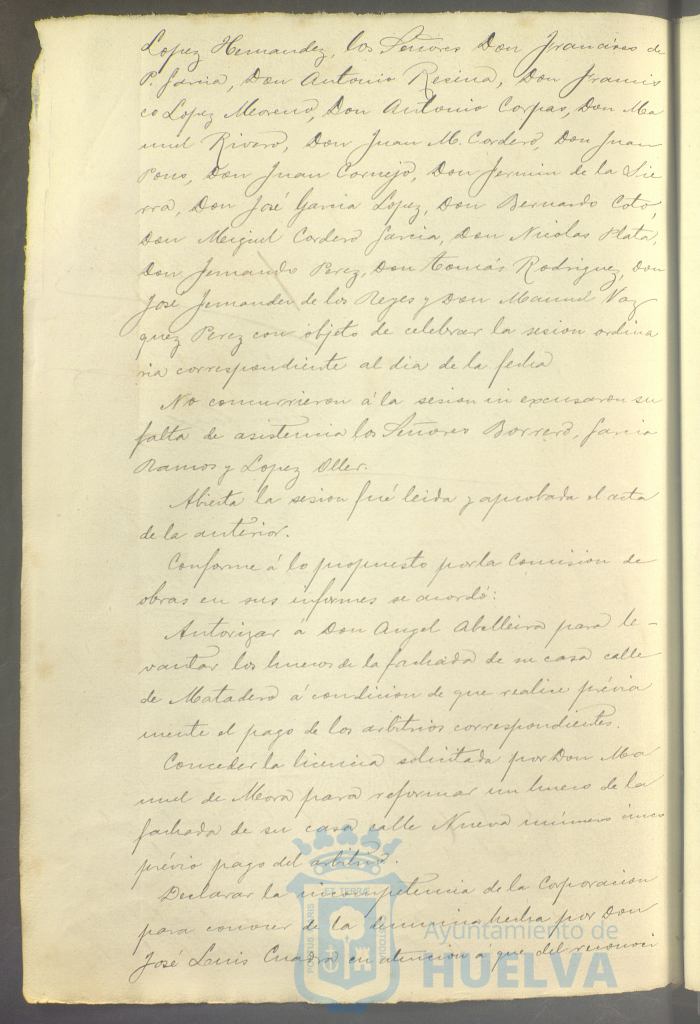 Lopez Hernandez, los Señores Don Francisco de
P. Garcia, Don Antonio Resina, Don Francis
co Lopez Moreno, Don Antonio Corpas, Don Ma
nuel Rivero, Don Juan M. Cordero, Don Juan
Pons, Don Juan Cornejo, Don Fermin de la Sie
rra, Don José Garcia Lopez, Don Bernardo Coto,
Don Miguel Cordero Garcia, Don Nicolas Plata,
Don Fernando Perez, Don Tomás Rodriguez, Don
José Fernandez de los Reyes y Don Manuel Vaz
quez Perez con objeto de celebrar la sesion ordina
ria correspondiente al dia de la fecha
No concurrieron á la sesion ni excusaron su
falta de asistencia los Señores Borrero, Garcia
Ramos y Lopez Oller.
Abierta la sesion fué leida y aprobada el acta
de la anterior.
Conforme á lo propuesto por la Comision de
obras en sus informes se acordó:
Autorizar á Don Angel Abelleira para le-
vantar los huecos de la fachada de su casa calle
de Matadero á condicion de que realice prévia
mente el pago de los arbitrios correspondientes.
Conceder la licencia solicitada por Don Ma
nuel de Mora para reformar un hueco de la
fachada de su casa calle Nueva número cinco
prévio pago del arbitrio.
Declarar la incompetencia de la Corporacion
para conocer de la denuncia hecha por Don
José Luis Cuadra en atencion á que del reconoci
Ayuntamiento de
HUELVA
PORTUS MARIS
ET TERRÆ
CUSTODIA